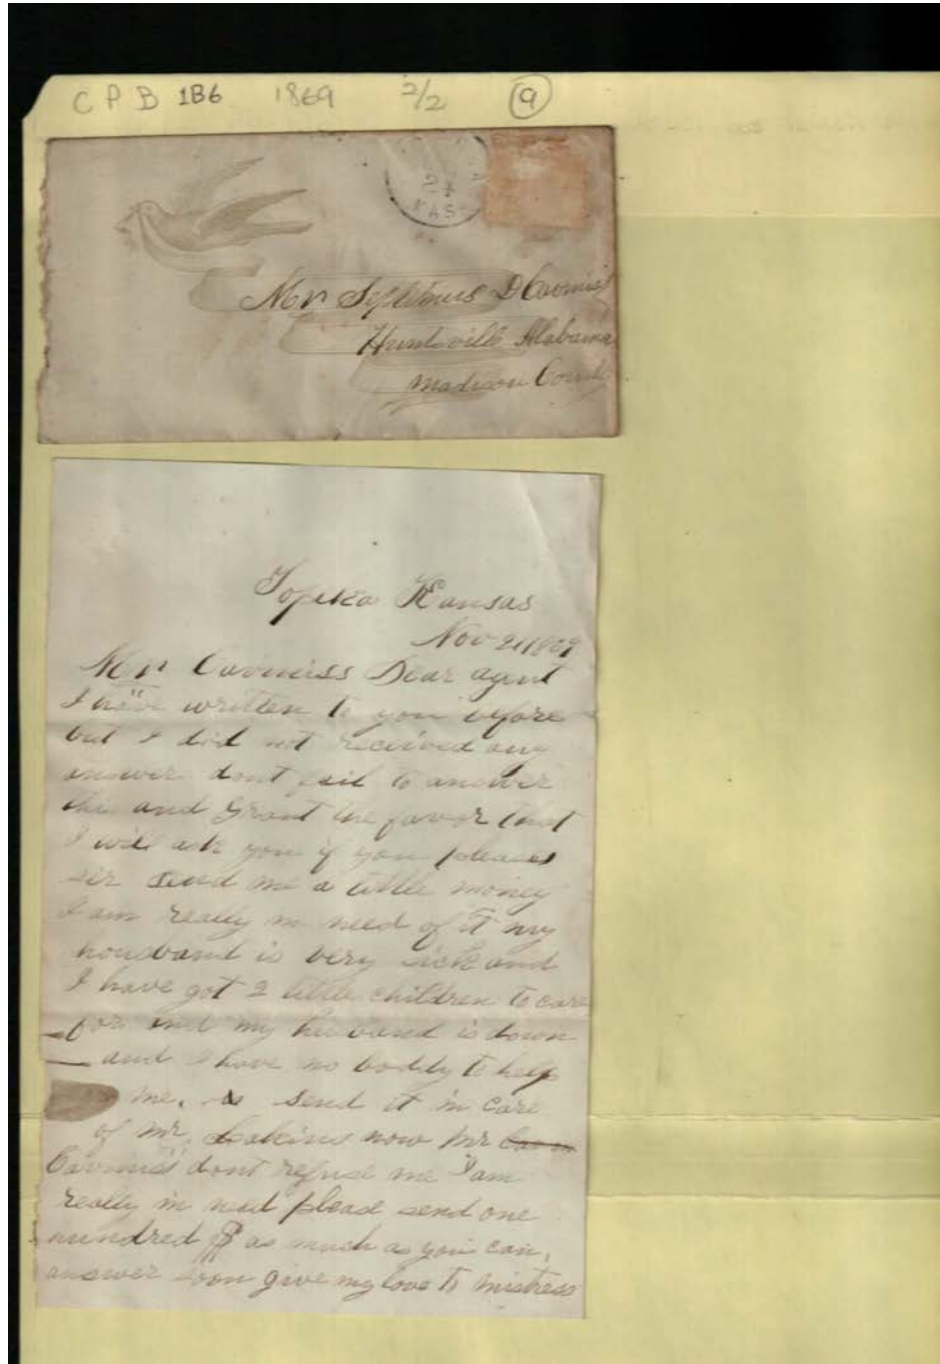 CPB 1B6 1869 2/2 9
KAS
Mr Septimus D Cavniss
Huntsville Alabama
Madison County
Topeka Kansas
Nov 21 1869
Mr Cavniess Dear agent
I have written to you before
but I did not received any
answer dont fail to answer
this and Grant the favor that
I will ask you if you pleas
sir send me a little money
I am really in need of it my
housband is very sick and
I have got 2 little children to care
for and my husband is down
and I have no boddy to help
me. send it in care
of Mr. Lakins now Mr
Cavniss dont refuse me I am
really in need plead send one
hundred as much as you can,
answer soon give my love to mistress